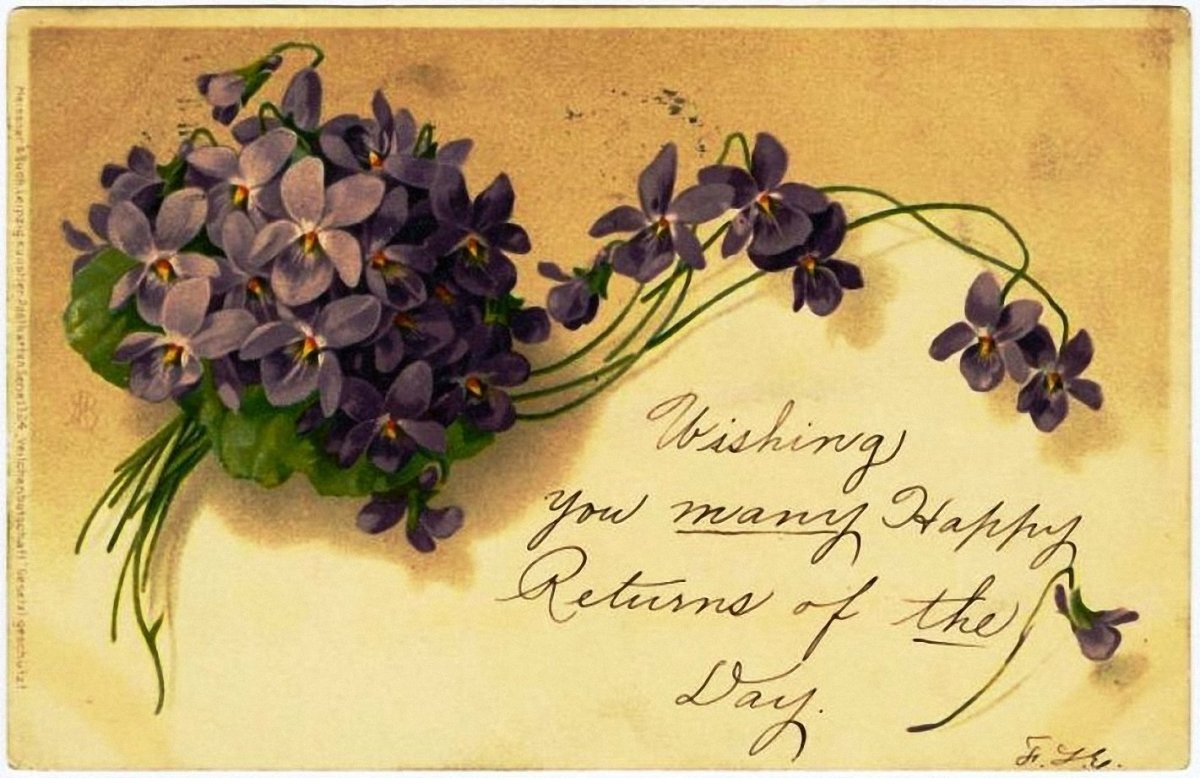 Wishing
you many Happy
Returns of the
Day.
F. L. E.
Meissner & Buch, Leipzig Künstler-Postkarten Serie 1326 Veilchenbotschaft Gesetzl. geschützt